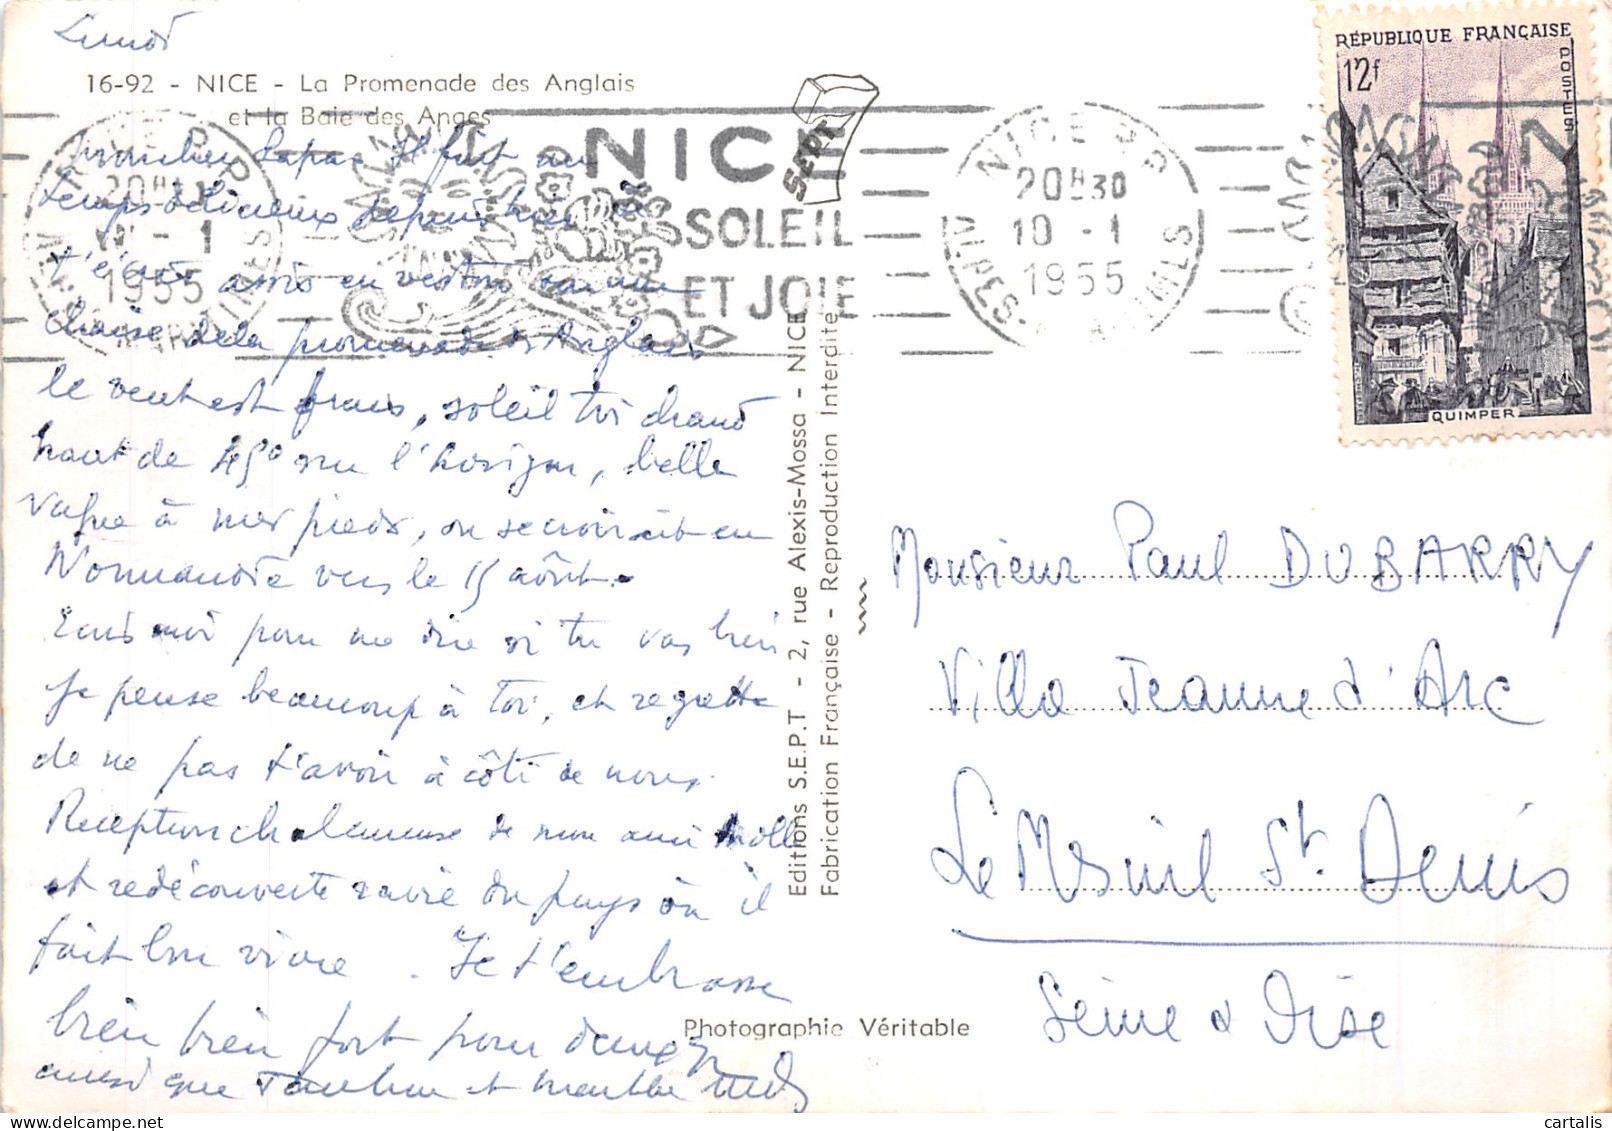 Lundi
16-92 - NICE - La Promenade des Anglais
et la Baie des Anges
mon cher Papa. Il fait un
temps délicieux depuis hier
t'écris assis en veston sur une
chaise de la promenade des Anglais
le vent est frais, soleil très chaud
haut de 45° sur l'horizon, belle
vague à mes pieds, on se croirait en
Normandie vers le 15 août.
Ecris moi pour me dire si tu vas bien
je pense beaucoup à toi, et regrette
de ne pas t'avoir à côté de nous.
Reception chaleureuse de mon ami
et redécouverte ravie du pays où il
fait bon vivre. Je t'embrasse
bien bien fort pour
aussi que et
NICE
SOLEIL
ET JOIE
SEPT
NICE R.P.
20H30
10 - 1
1955
ALPES-MARITIMES
NICE R.P.
20H30
10 - 1
1955
RÉPUBLIQUE FRANÇAISE
12f
POSTES
QUIMPER
Editions S.E.P.T - 2, rue Alexis-Mossa - NICE
Fabrication Française - Reproduction Interdite
Monsieur Paul DUBARRY
Villa Jeanne d'Arc
Le Mesnil St. Denis
Seine & Oise
Photographie Véritable
cartalis